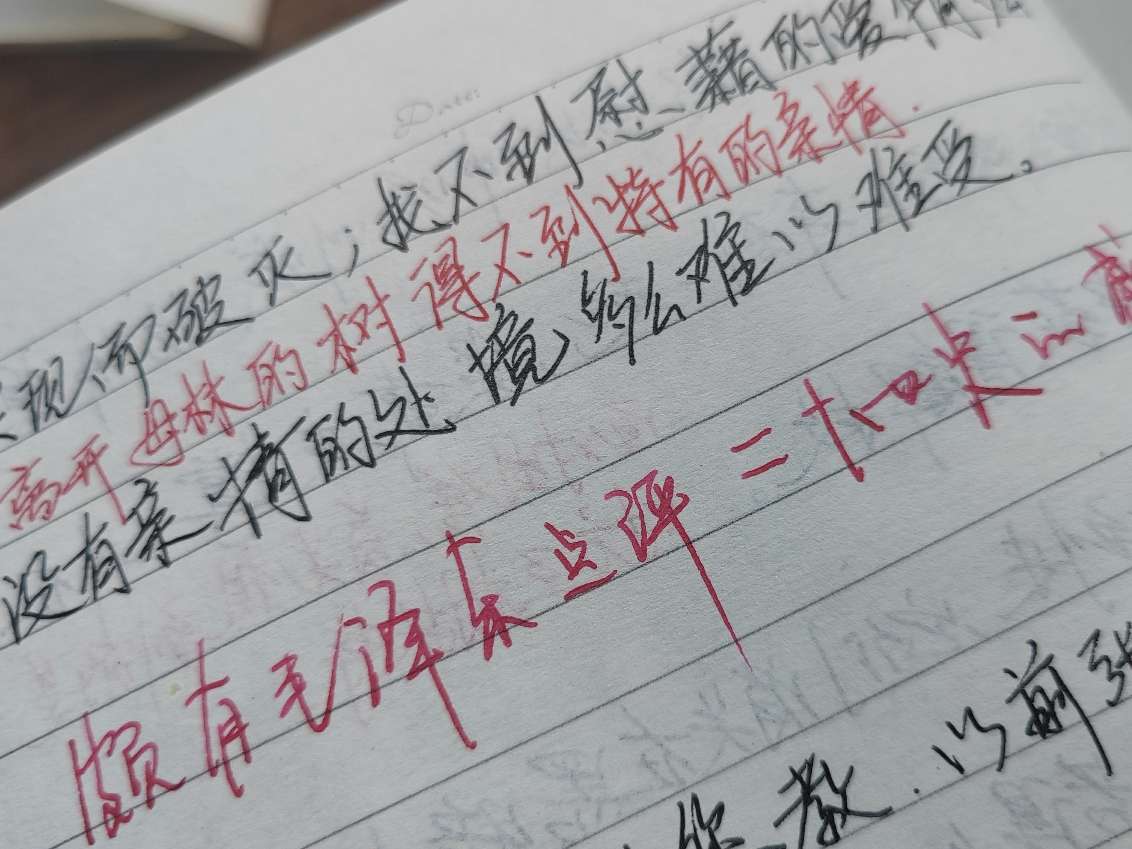 Date:
现而破灭；找不到慰藉的爱情
离开母林的树得不到特有的亲情.
没有亲情的处境，多么难以难受。
颇有毛泽东点评二十四史之
你教.以前